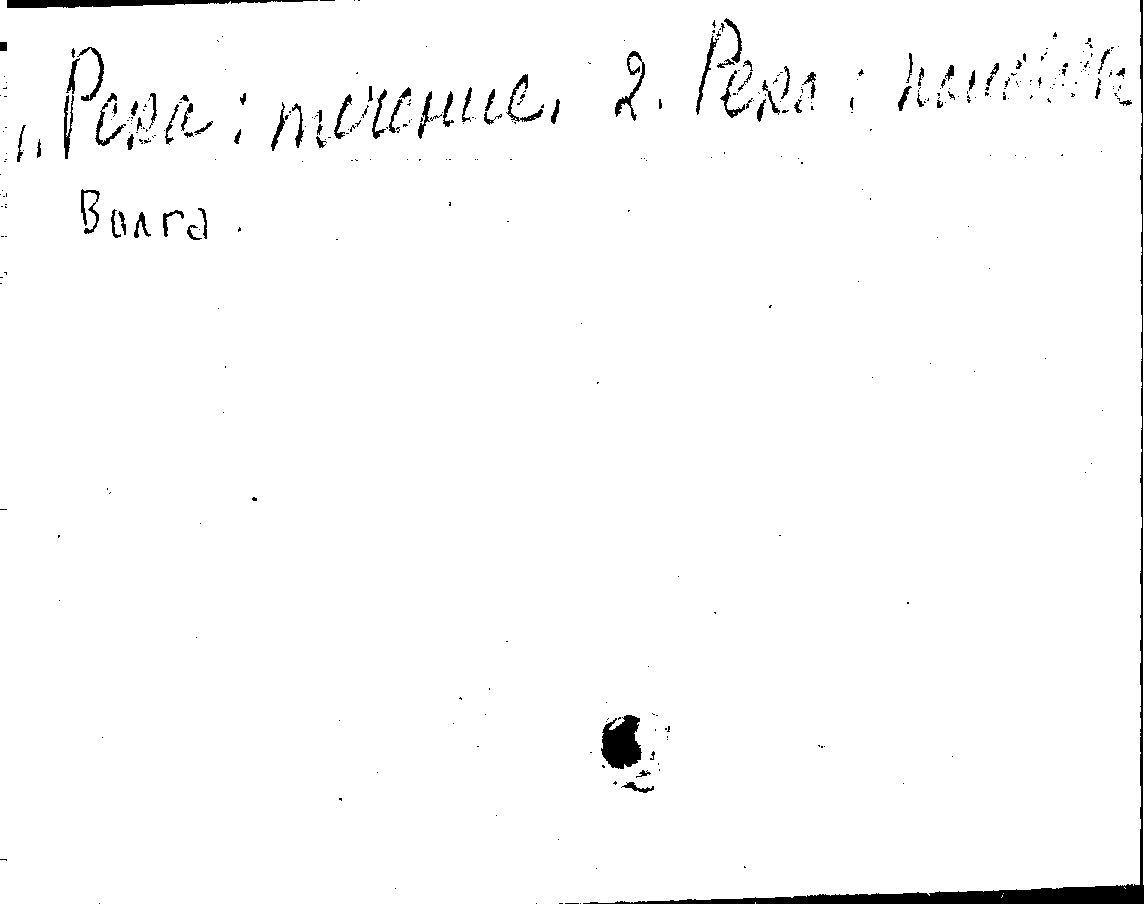 1. Река: течение. 2. Река:
Волга.